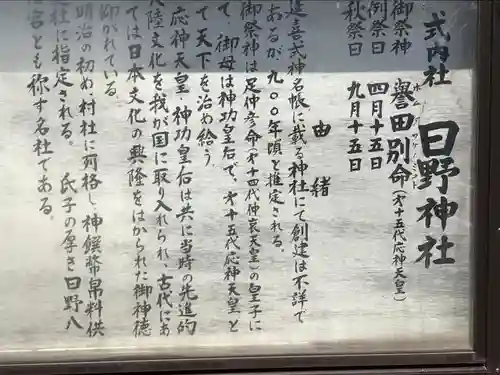 式内社 日野神社
御祭神 譽田別命(オ十五代応神天皇)
例祭日 四月十五日
秋祭日 九月十五日
由緒
延喜式神名帳に載る神社にて創建は不詳で
あるが、九〇〇年頃と推定される。
御祭神は足仲彦命オ十四代仲哀天皇)の皇子に
て、御母は神功皇后で、オ十五代応神天皇と
て天下を治め給う
応神天皇・神功皇后は共に当時の先進的
大陸文化を我が国に取り入れられ、古代にあ
ては日本文化の興隆をはかられた御神徳
仰がれている。
明治の初め、村社に列格し、神饌幣帛料供
社に指定される。氏子の厚き日野八
宮とも称す名社である。